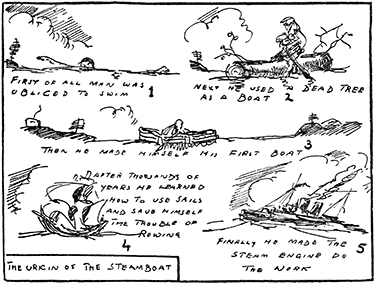 FIRST OF ALL MAN WAS
OBLIGED TO SWIM
1
NEXT HE USED A DEAD TREE
AS A BOAT
2
THEN HE MADE HIMSELF HIS FIRST BOAT
3
AFTER THOUSANDS OF
YEARS HE LEARNED
HOW TO USE SAILS
AND SAVE HIMSELF
THE TROUBLE OF
ROWING
4
FINALLY HE MADE THE
STEAM ENGINE DO
THE WORK
5
THE ORIGIN OF THE STEAMBOAT